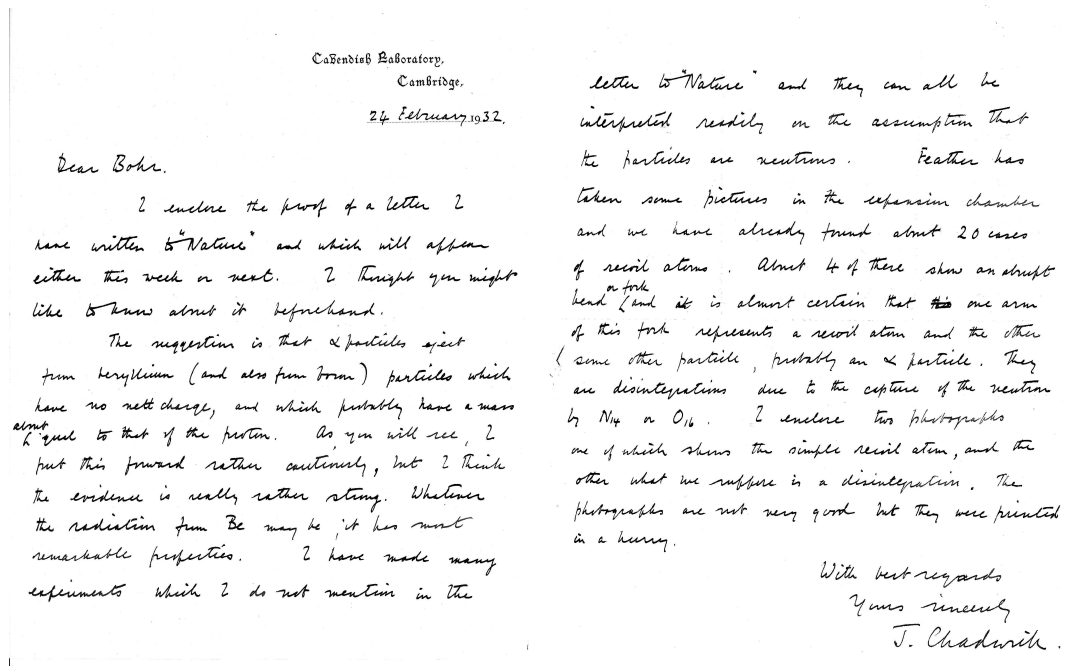 Cavendish Laboratory,
Cambridge.
24 February 1932.
Dear Bohr.
I enclose the proof of a letter I
have written to "Nature" and which will appear
either this week or next. I thought you might
like to know about it beforehand.
The suggestion is that α particles eject
from beryllium (and also from boron) particles which
have no nett charge, and which probably have a mass
about equal to that of the proton. As you will see, I
put this forward rather cautiously, but I think
the evidence is really rather strong. Whatever
the radiation from Be may be, it has most
remarkable properties. I have made many
experiments which I do not mention in the
letter to "Nature" and they can all be
interpreted readily on the assumption that
the particles are neutrons. Feather has
taken some pictures in the expansion chamber
and we have already found about 20 cases
of recoil atoms. About 4 of these show an abrupt
bend or fork and it is almost certain that this one arm
of this fork represents a recoil atom and the other
some other particle, probably an α particle. They
are disintegrations due to the capture of the neutron
by N14 or O16. I enclose two photographs
one of which shows the simple recoil atom, and the
other what we suppose is a disintegration. The
photographs are not very good but they were printed
in a hurry.
With best regards
Yours sincerely
J. Chadwick.